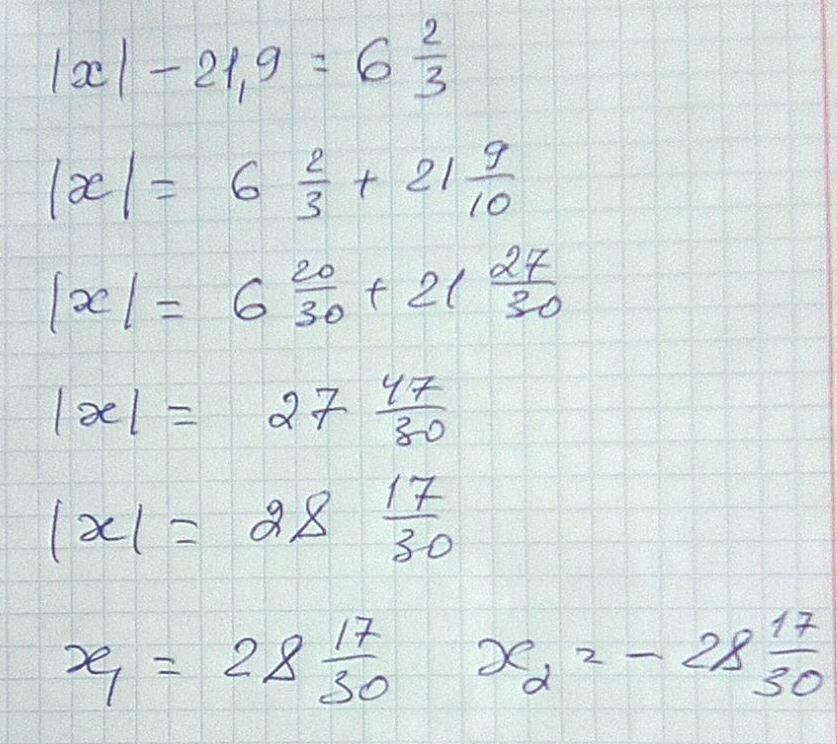 |x| - 21,9 = 6 2/3
|x| = 6 2/3 + 21 9/10
|x| = 6 20/30 + 21 27/30
|x| = 27 47/30
|x| = 28 17/30
x₁ = 28 17/30 x₂ = - 28 17/30